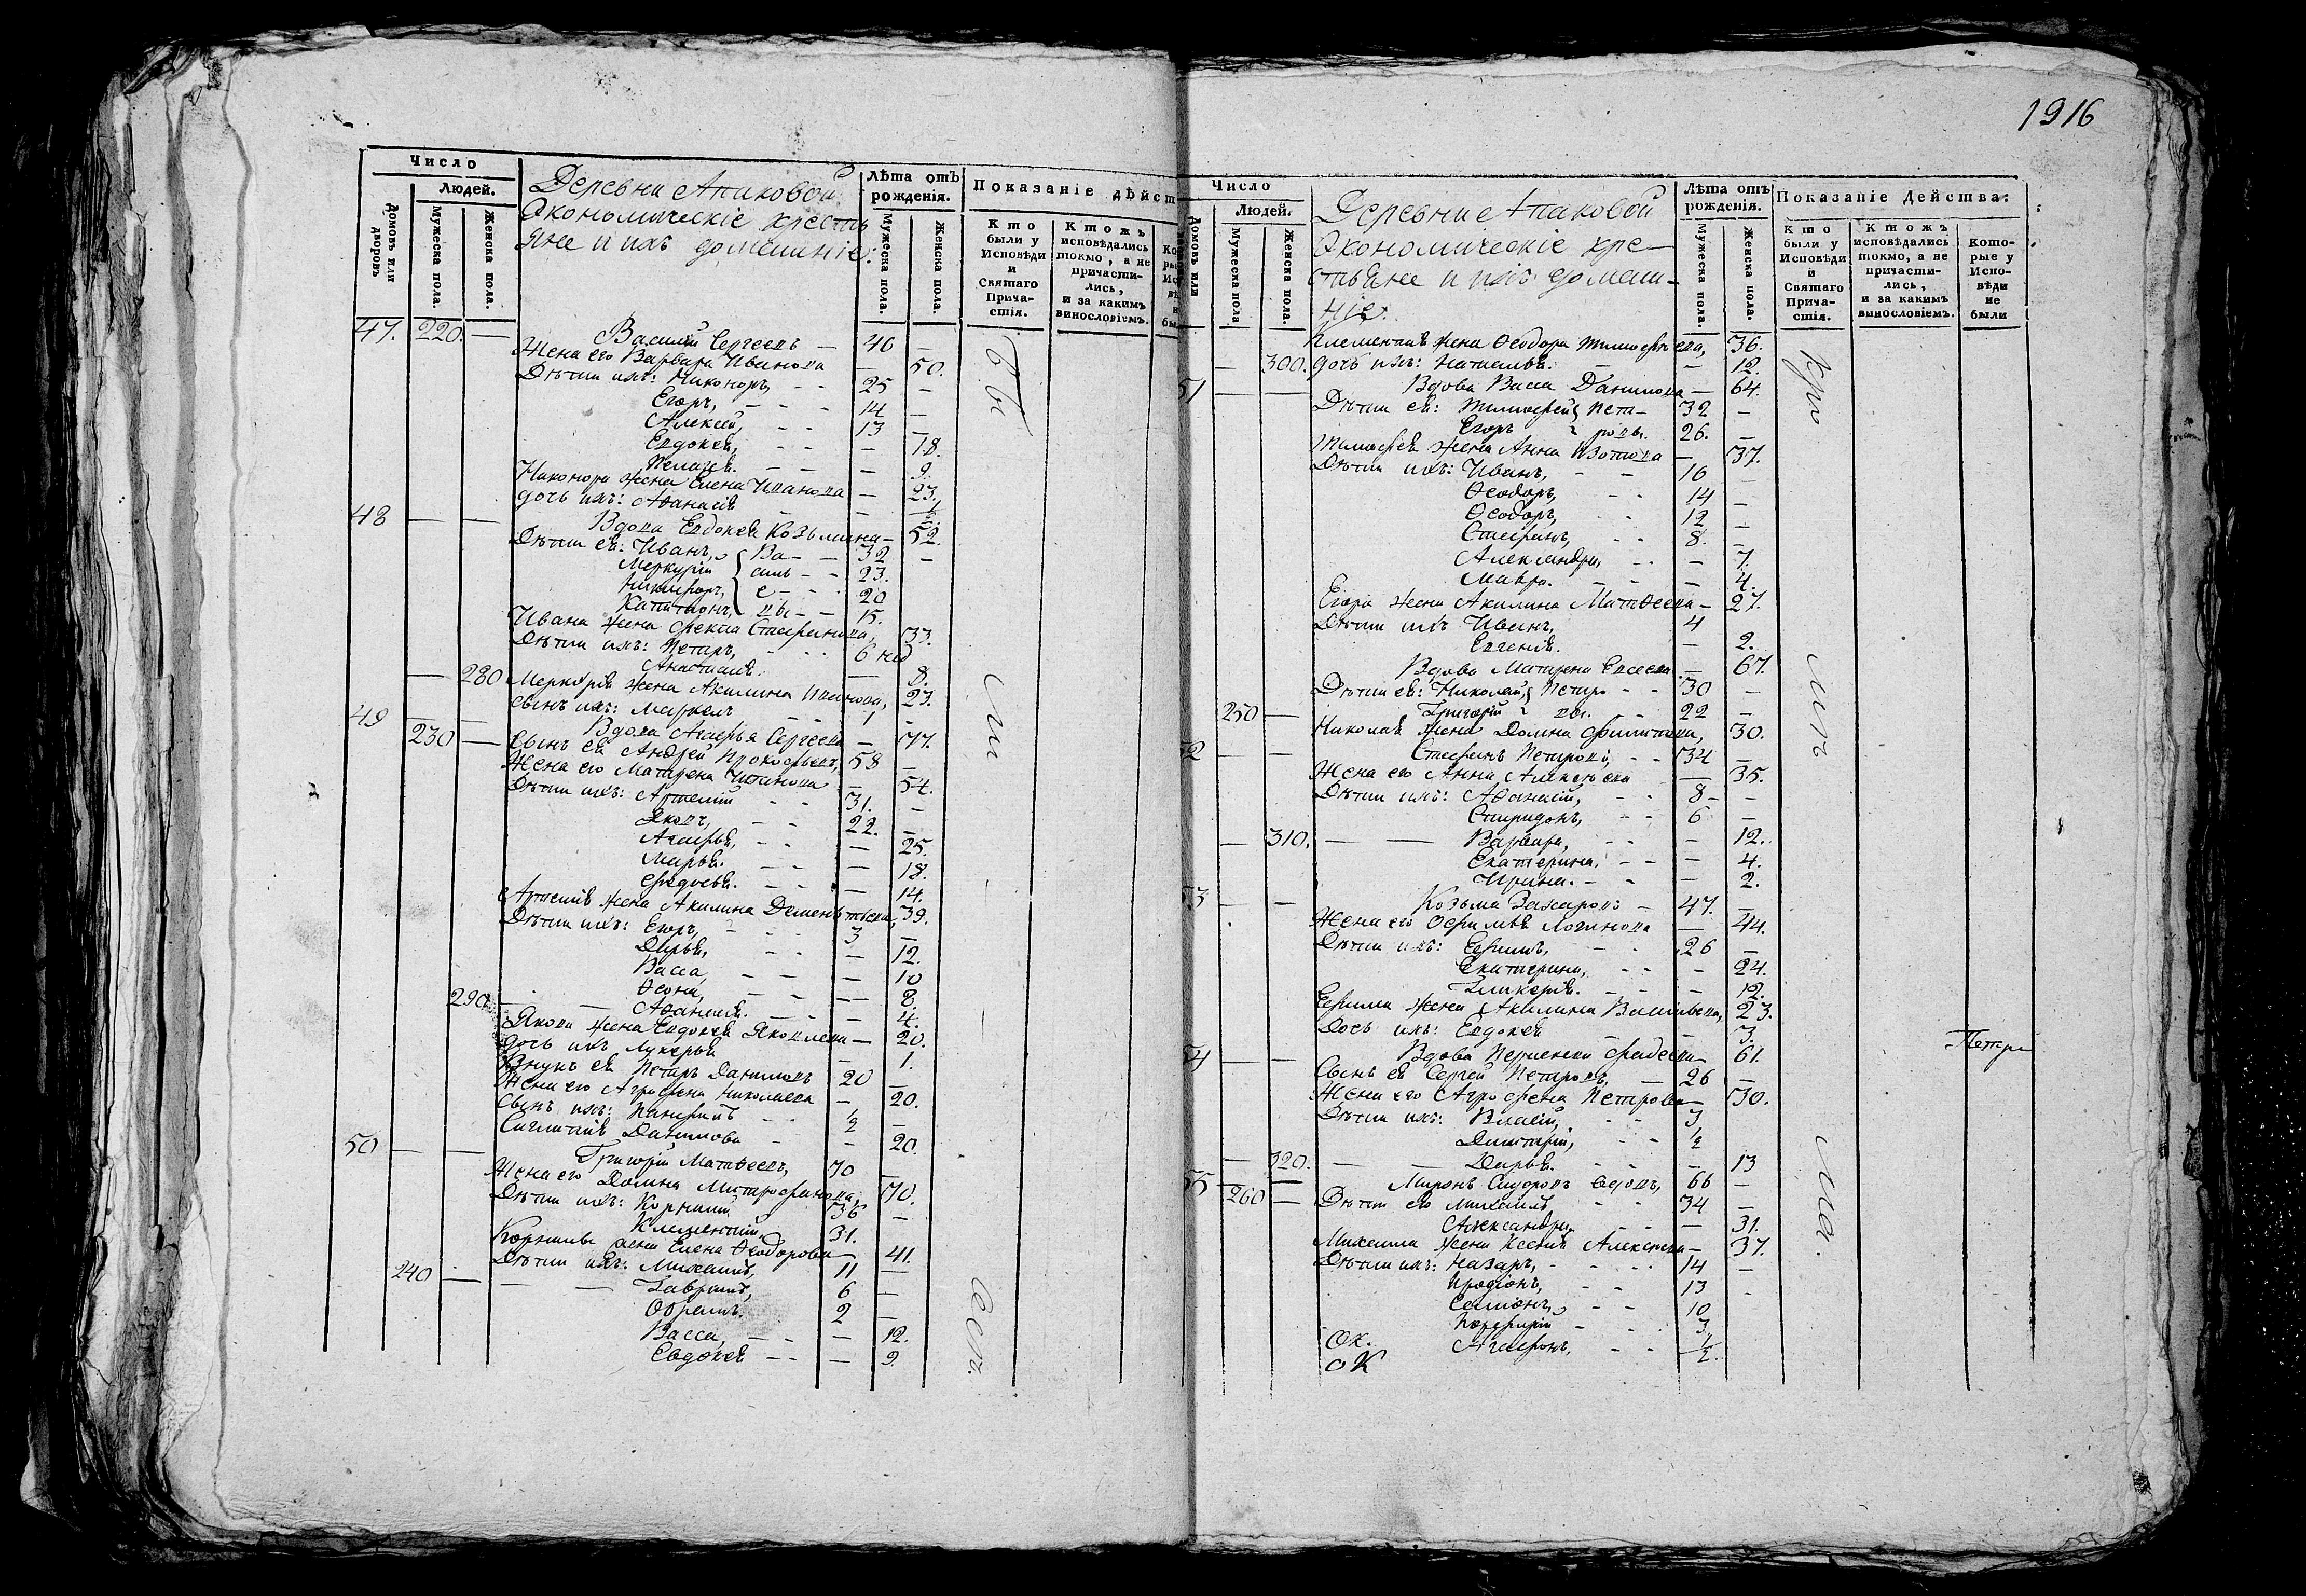 1916
Число
Людей.
Домовъ или дворовъ
Мужеска пола.
Женска пола.
Деревни Апаковой
Экономическіе кресть
яне и ихъ домашніе:
Лѣта отъ рожденія.
Мужеска пола.
Женска пола.
Показаніе дѣйст
Кто были у Исповѣди и Святаго Прича-стія.
Ктожъ исповѣдались токмо, а не причасти-лись, и за какимъ винословіемъ.
47. 220. — Василій Сергеевъ — 46 —
Жена его Варвара Иванова — 50.
Дѣти ихъ: Никоноръ, - - 25 —
Егоръ, - - - 14 —
Алексей, - - 13 —
Евдокея, - - — 18.
Пелагея. - - — 9.
Никонора жена Елена Иванова — 23.
дочь ихъ: Афанасія — 1/2
48 — — Вдова Евдокея Козьмина — 52.
Дѣти ея: Иванъ, Ва- — 32 —
Меркурій силь - - 23.
Никифоръ, е - - 20
Капитонъ, вы - - 15.
Ивана жена Фекла Стефанова, 33.
Дѣти ихъ: Петръ, - - 6 нед
Анастасія. — 8.
— 280 Меркурія жена Акилина Иванова, 23.
сынъ ихъ: Маркелъ - - 1 —
49 — — Вдова Агафья Сергеева — 77.
230 — Сынъ ея Андрей Прокофьевъ, 58 —
Жена его Матрена — 54.
Дѣти ихъ: Артемій - - 31. —
Яковъ, - - 22. —
Агафья, - - — 25.
Марья. - - — 18.
Федосья. - - — 14.
Артемія жена Акилина Дементьева, 39.
Дѣти ихъ: Егоръ, - - 3 —
Дарья, - - — 12.
Васса, - - — 10
Ѳеона, - - — 8.
290. — — Афанасія. - - — 4.
Якова жена Евдокея Яковлева — 20.
дочь ихъ Лукерья — 1.
Внукъ ея Петръ Даниловъ 20 —
Жена его Агрофена Николаева — 20.
Сынъ ихъ: Панфилъ - - 1/2 —
Данилова - — 20.
50 — — Григорій Матвеевъ, 70 —
Жена его Домна Митрофанова, 70.
Дѣти ихъ: Корнилій 36 —
Климентій, 31.
Корнилья жена Елена Ѳеодорова — 41.
Дѣти ихъ: Михаилъ, 11 —
240 — — — Гаврилъ, 6 —
2 —
Васса, - - — 12.
Евдокея - - — 9.
Число
Людей.
Домовъ или
Мужеска пола
Женска пола.
Деревни Апаковой
Экономическіе кре-
стьяне и ихъ домаш-
ніе.
Лѣта отъ рожденія.
Мужеска пола.
Женска пола.
Показаніе Действа:
Кто были у Исповѣди и Святаго Прича-стія.
Ктожъ исповѣдались токмо, а не причасти-лись, и за какимъ винословіемъ.
Кото-рые у Испо-вѣди не были
Климентія жена Ѳеодора Тимофѣева, 36.
— 300. дочь ихъ: Наталья. - — 12.
51 — — Вдова Васса Данилова — 64.
Дѣти ея: Тимофей Пет- 32 —
Егоръ ровы. 26. —
Тимофея жена Анна Изотова — 37.
Дѣти ихъ: Иванъ, - - 16 —
Ѳеодоръ, - - 14 —
Ѳеодоръ, - - 12 —
Стефанъ, - - 8. —
Александра, - - — 7.
Мавра. - - — 4.
Егора жена Акилина Матвеева — 27.
Дѣти ихъ Иванъ, 4
Евгенія. — 2.
Вдова Матрена Евсеева — 67.
Дѣти ея: Николай, Петро - - 30 —
250 — Григорій вы. - - 22 —
Николая жена Домна Филипова, 30.
52 — — Стефанъ Петровъ, - - 34 —
Жена его Анна Алексеева — 35.
Дѣти ихъ: Афанасій, - - 8 - —
Спиридонъ, - - 6 —
— 310. — — Варвара, - - — 12.
Екатерина, - - — 4.
Ирина. - - — 2.
53 — — Козьма Захаровъ — 47. —
Жена его Логинова — 44.
Дѣти ихъ: Ефимъ, - - 26 —
Екатерина, - - — 24.
Гликерія. - - — 12.
Ефима жена Акилина Васильева, 23.
Дочь ихъ: Евдокея — 3.
54 — — Вдова Фадеева — 61.
Сынъ ея Сергей Петровъ, — 26 —
Жена его Агрофена Петрова — 30.
Дѣти ихъ: Власій, - - 3
Димитрій, - - 1/2
— 320. — — Дарья. - - — 13
55 — Миронъ Сидоровъ вдовъ, 66 —
260 — Дѣти его Михаилъ, - - 34 —
Александра, - - — 31.
Михаила жена Ксенія Алексеева — 37.
Дѣти ихъ: Назаръ, - - 14 —
Иродіонъ, - - 13 —
Семіонъ, - - 10
Порфирій - - 3,
Ок. Агафонъ, - - 1/2.
ОК